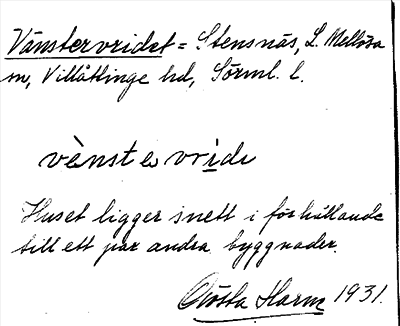 Vänstervridet = Stensnäs, L. Mellösa
sn, Villåttinge hd, Sörml. l.
vènster vride
Huset ligger snett i förhållande
till ett par andra byggnader.
Gösta Harm 1931.